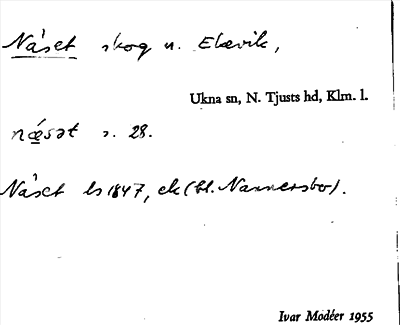 Näset skog n. Ekevik,
Ukna sn, N. Tjusts hd, Klm. l.
næ̀sət s. 28.
Näset ls 1847, ek (bl. Nannersbo).
Ivar Modéer 1955